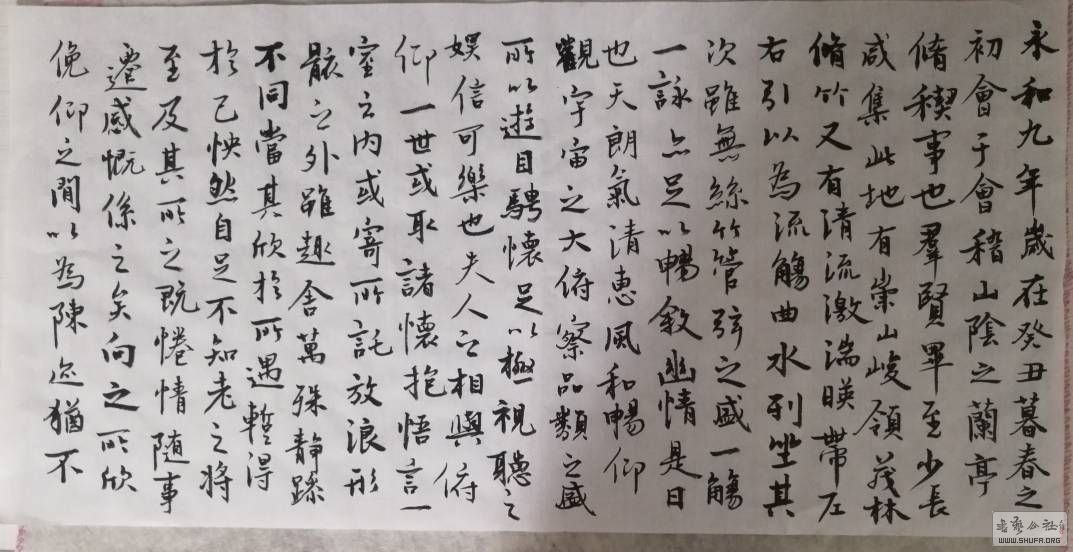 永和九年歲在癸丑暮春之
初會于會稽山陰之蘭亭
脩稧事也羣賢畢至少長
咸集此地有崇山峻領茂林
脩竹又有清流激湍暎帶左
右引以為流觴曲水列坐其
次雖無絲竹管弦之盛一觴
一詠亦足以暢敘幽情是日
也天朗氣清惠風和暢仰
觀宇宙之大俯察品類之盛
所以遊目騁懷足以極視聽之
娛信可樂也夫人之相與俯
仰一世或取諸懷抱悟言一
室之內或寄所託放浪形
骸之外雖趣舍萬殊靜躁
不同當其欣於所遇暫得
於己怏然自足不知老之將
至及其所之既惓情隨事
遷感慨係之矣向之所欣
俛仰之間以為陳迹猶不
WWW.SHUFA.ORG